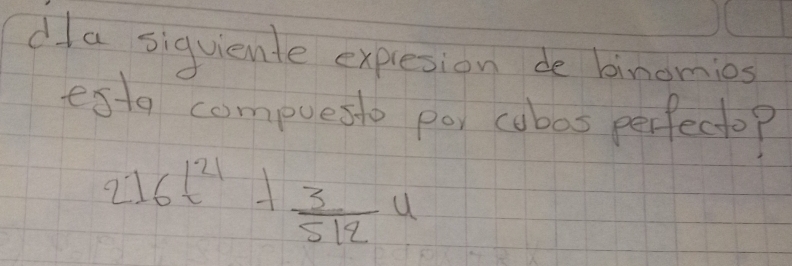 ¿la siguiente expresion de binomios
esta compuesto por cubos perfecto?
216t²¹ + 3/512 u